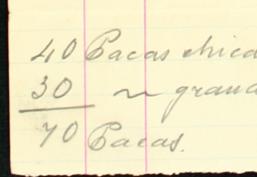 40 Pacas chica
30 " grand
70 Pacas.